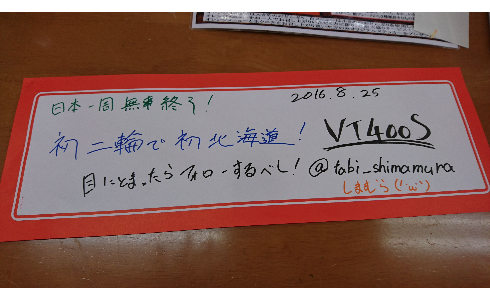 日本一周無事終了!
2016.8.25
初二輪で初北海道!
VT400S
目にとまったらフォローするべし!
@tabi_shimamura
しまむら(´・ω・`)